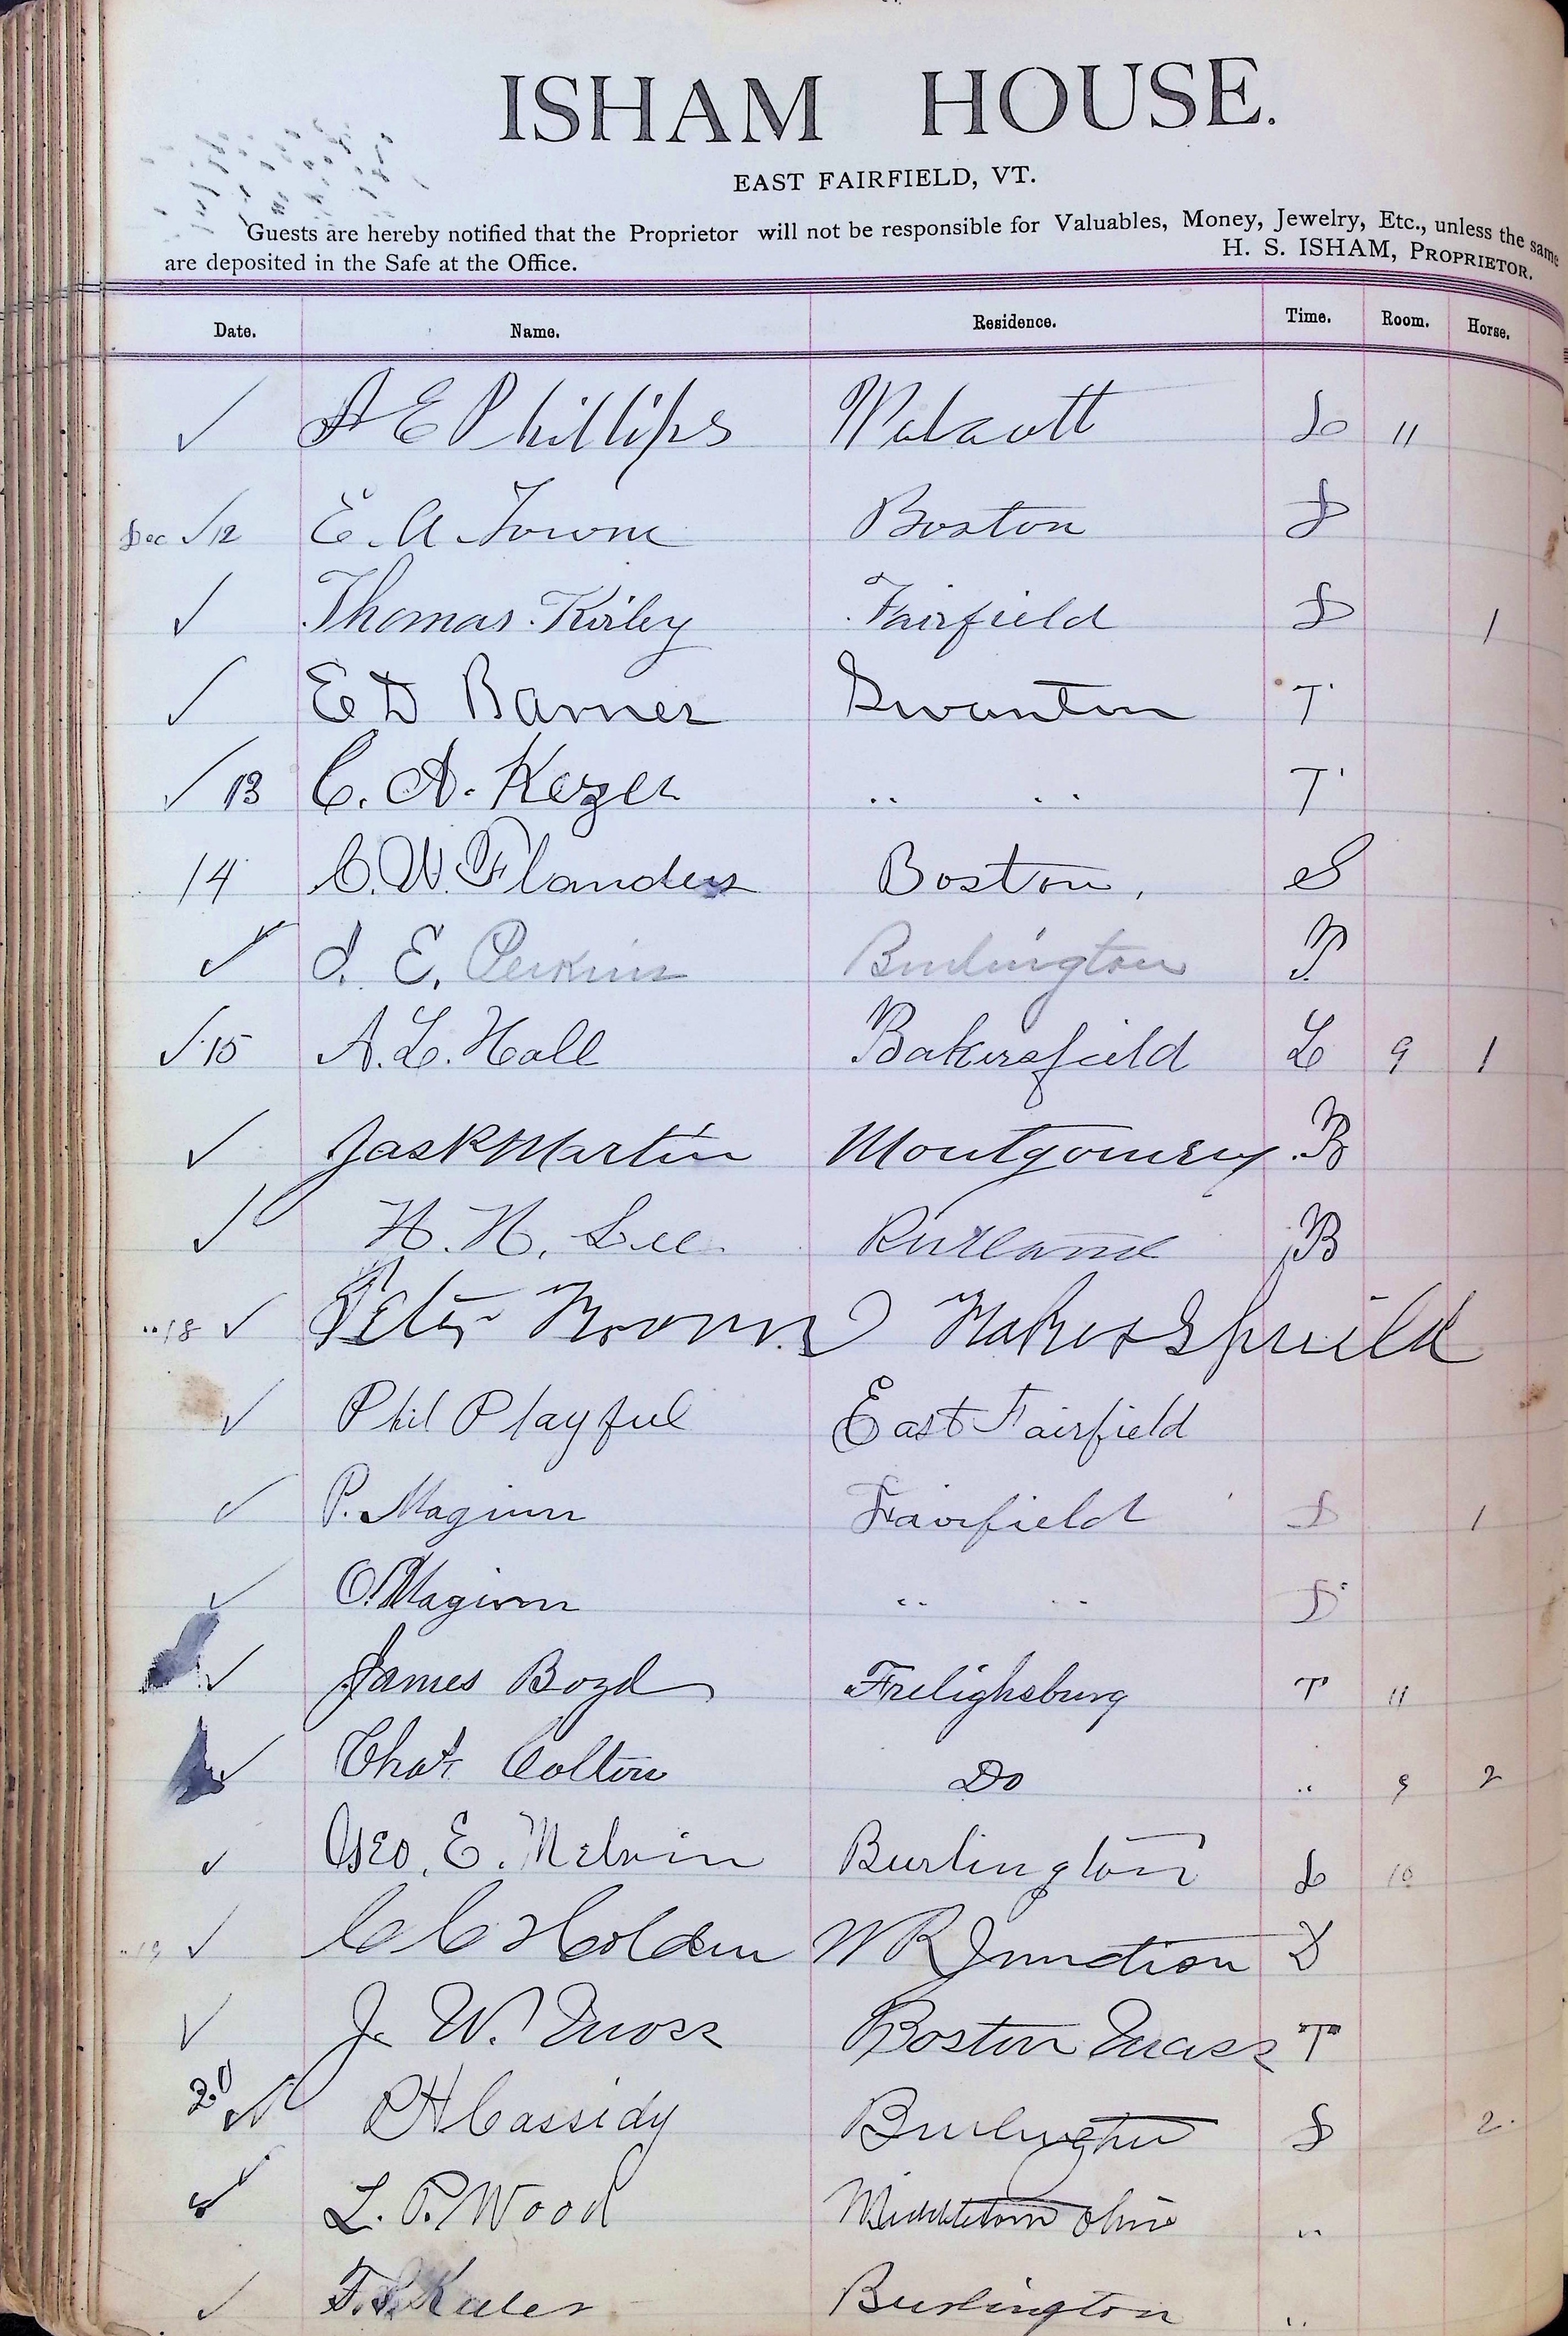 ISHAM HOUSE.
EAST FAIRFIELD, VT.
Guests are hereby notified that the Proprietor will not be responsible for Valuables, Money, Jewelry, Etc., unless the same
are deposited in the Safe at the Office. H. S. ISHAM, PROPRIETOR.
Date. Name. Residence. Time. Room. Horse.
✓ A E Phillips Wolcott L 11
Dec ✓ 12 E. A. Towne Boston D
✓ Thomas Kirley Fairfield D 1
✓ E D Barner Swanton T
✓ 13 C. A. Kezer " " T
14 C. W. Flanders Boston, S
✓ E. Perkins Burlington
✓ 15 A. L. Hall Bakersfield L 9 1
✓ Martin Montgomery B
✓ Lee Rutland B
" 18 ✓ Peter
✓ Phil Playful East Fairfield
✓ P. Maginn Fairfield D 1
✓ O. Maginn " " D
✓ James Boyd Frelighsburg T 11
✓ Chas. Colton Do " 9 2
✓ Geo. E. Melvin Burlington L 10
" 19 ✓ C C Holden W R Junction D
✓ J. W. Moss Boston Mass T
20 ✓ Cassidy Burlington 2
✓ L. P. Wood Middletown Ohio "
✓ Burlington "